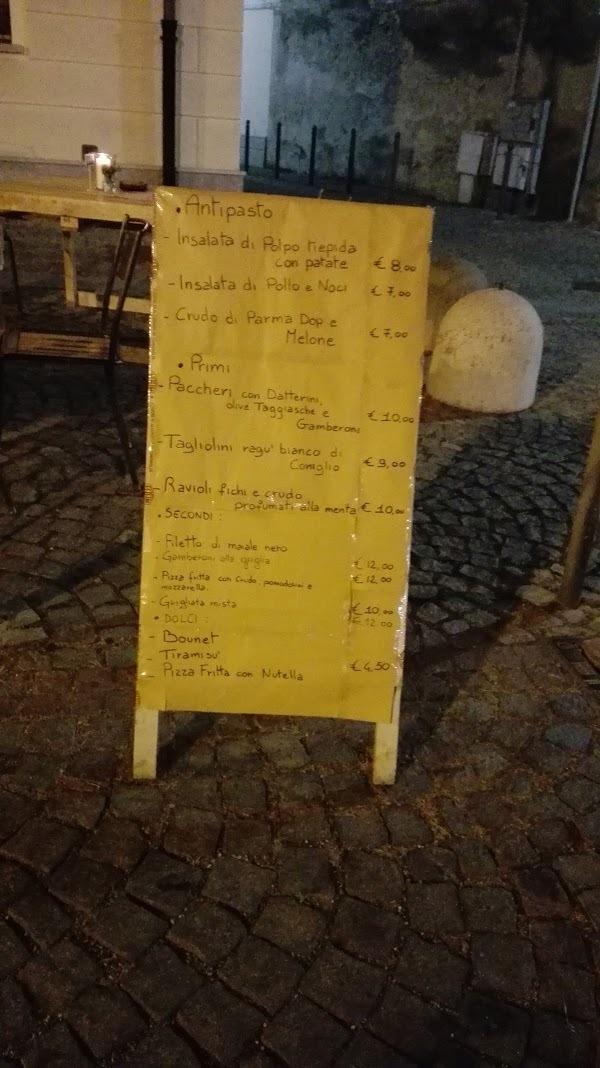 • Antipasto
- Insalata di Polpo tiepida
con patate € 8,00
- Insalata di Pollo e Noci € 7,00
- Crudo di Parma Dop e
Melone € 7,00
• Primi
- Paccheri con Datterini,
olive Taggiasche e
Gamberoni € 10,00
- Tagliolini ragu' bianco di
Coniglio € 9,00
- Ravioli fichi e crudo
profumati alla menta € 10,00
• SECONDI :
- Filetto di maiale nero € 12,00
- Gamberoni alla griglia € 12,00
- Pizza fritta con crudo, pomodorini e
mozzarella. € 10,00
- Grigliata mista € 12,00
• DOLCI :
- Bounet
- Tiramisu'
- Pizza Fritta con Nutella € 4,50